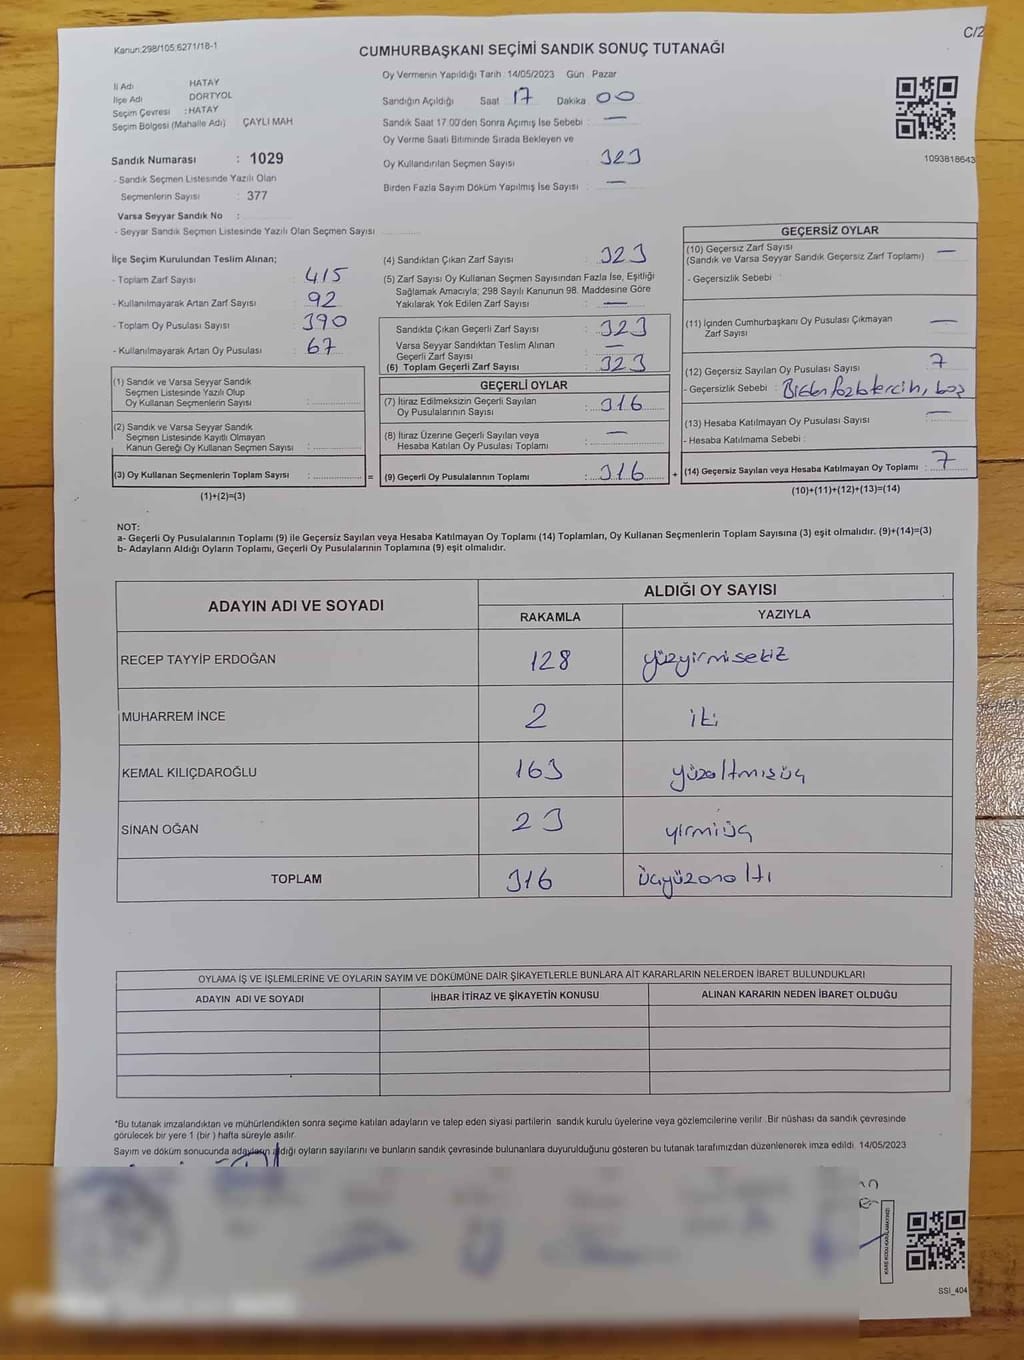 Kanun:298/105,6271/18-1
C/2
CUMHURBAŞKANI SEÇİMİ SANDIK SONUÇ TUTANAĞI
İl Adı HATAY
İlçe Adı DÖRTYOL
Seçim Çevresi : HATAY
Seçim Bölgesi (Mahalle Adı) ÇAYLI MAH
Sandık Numarası : 1029
- Sandık Seçmen Listesinde Yazılı Olan
Seçmenlerin Sayısı : 377
Varsa Seyyar Sandık No :
- Seyyar Sandık Seçmen Listesinde Yazılı Olan Seçmen Sayısı
Oy Vermenin Yapıldığı Tarih : 14/05/2023 Gün Pazar
Sandığın Açıldığı Saat 17 Dakika 00
Sandık Saat 17:00'den Sonra Açımış İse Sebebi : —
Oy Verme Saati Bitiminde Sırada Bekleyen ve
Oy Kullandırılan Seçmen Sayısı 323
Birden Fazla Sayım Döküm Yapılmış İse Sayısı : —
1093818643
İlçe Seçim Kurulundan Teslim Alınan;
- Toplam Zarf Sayısı : 415
- Kullanılmayarak Artan Zarf Sayısı : 92
- Toplam Oy Pusulası Sayısı : 390
- Kullanılmayarak Artan Oy Pusulası : 67
(1) Sandık ve Varsa Seyyar Sandık
Seçmen Listesinde Yazılı Olup
Oy Kullanan Seçmenlerin Sayısı :
(2) Sandık ve Varsa Seyyar Sandık
Seçmen Listesinde Kayıtlı Olmayan
Kanun Gereği Oy Kullanan Seçmen Sayısı :
(3) Oy Kullanan Seçmenlerin Toplam Sayısı : =
(1)+(2)=(3)
(4) Sandıktan Çıkan Zarf Sayısı : 323
(5) Zarf Sayısı Oy Kullanan Seçmen Sayısından Fazla İse, Eşitliği
Sağlamak Amacıyla; 298 Sayılı Kanunun 98. Maddesine Göre
Yakılarak Yok Edilen Zarf Sayısı : —
Sandıkta Çıkan Geçerli Zarf Sayısı : 323
Varsa Seyyar Sandıktan Teslim Alınan
Geçerli Zarf Sayısı : —
(6) Toplam Geçerli Zarf Sayısı : 323
GEÇERLİ OYLAR
(7) İtiraz Edilmeksizin Geçerli Sayılan
Oy Pusulalarının Sayısı : 316
(8) İtiraz Üzerine Geçerli Sayılan veya
Hesaba Katılan Oy Pusulası Toplamı : —
(9) Geçerli Oy Pusulalarının Toplamı : 316 +
GEÇERSİZ OYLAR
(10) Geçersiz Zarf Sayısı
(Sandık ve Varsa Seyyar Sandık Geçersiz Zarf Toplamı) : —
- Geçersizlik Sebebi :
(11) İçinden Cumhurbaşkanı Oy Pusulası Çıkmayan
Zarf Sayısı : —
(12) Geçersiz Sayılan Oy Pusulası Sayısı : 7
- Geçersizlik Sebebi : Birden fazla tercih, boş
(13) Hesaba Katılmayan Oy Pusulası Sayısı : —
- Hesaba Katılmama Sebebi :
(14) Geçersiz Sayılan veya Hesaba Katılmayan Oy Toplamı : 7
(10)+(11)+(12)+(13)=(14)
NOT:
a- Geçerli Oy Pusulalarının Toplamı (9) ile Geçersiz Sayılan veya Hesaba Katılmayan Oy Toplamı (14) Toplamları, Oy Kullanan Seçmenlerin Toplam Sayısına (3) eşit olmalıdır. (9)+(14)=(3)
b- Adayların Aldığı Oyların Toplamı, Geçerli Oy Pusulalarının Toplamına (9) eşit olmalıdır.
ADAYIN ADI VE SOYADI
ALDIĞI OY SAYISI
RAKAMLA YAZIYLA
RECEP TAYYİP ERDOĞAN 128 yüzyirmisekiz
MUHARREM İNCE 2 iki
KEMAL KILIÇDAROĞLU 163 yüzaltmışüç
SİNAN OĞAN 23 yirmiüç
TOPLAM 316 üçyüzonaltı
OYLAMA İŞ VE İŞLEMLERİNE VE OYLARIN SAYIM VE DÖKÜMÜNE DAİR ŞİKAYETLERLE BUNLARA AİT KARARLARIN NELERDEN İBARET BULUNDUKLARI
ADAYIN ADI VE SOYADI İHBAR İTİRAZ VE ŞİKAYETİN KONUSU ALINAN KARARIN NEDEN İBARET OLDUĞU
*Bu tutanak imzalandıktan ve mühürlendikten sonra seçime katılan adayların ve talep eden siyasi partilerin sandık kurulu üyelerine veya gözlemcilerine verilir. Bir nüshası da sandık çevresinde
görülecek bir yere 1 (bir) hafta süreyle asılır.
Sayım ve döküm sonucunda adayların aldığı oyların sayılarını ve bunların sandık çevresinde bulunanlara duyurulduğunu gösteren bu tutanak tarafımızdan düzenlenerek imza edildi. 14/05/2023
KARE KODU KARALAMAYINIZ!
SSI_404